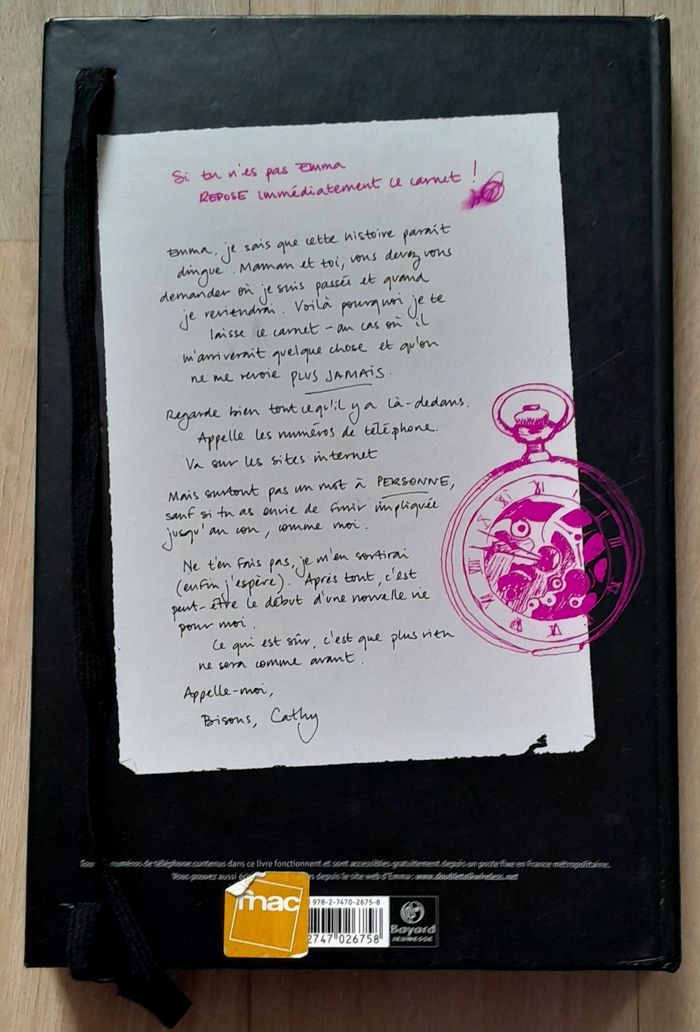 Si tu n'es pas Emma
REPOSE immédiatement ce carnet !
Emma, je sais que cette histoire paraît
dingue. Maman et toi, vous devez vous
demander où je suis passée et quand
je reviendrai. Voilà pourquoi je te
laisse ce carnet - au cas où il
m'arriverait quelque chose et qu'on
ne me revoie PLUS JAMAIS.
Regarde bien tout ce qu'il y a là-dedans.
Appelle les numéros de téléphone.
Va sur les sites internet
Mais surtout pas un mot à PERSONNE,
sauf si tu as envie de finir impliquée
jusqu'au cou, comme moi.
Ne t'en fais pas, je m'en sortirai
(enfin j'espère). Après tout, c'est
peut-être le début d'une nouvelle vie
pour moi.
Ce qui est sûr, c'est que plus rien
ne sera comme avant.
Appelle-moi,
Bisous, Cathy
numéros de téléphone contenus dans ce livre fonctionnent et sont accessibles gratuitement depuis un poste fixe en France métropolitaine.
Vous pouvez aussi depuis le site web d'Emma :
fnac
978-2-7470-2675-8
2747 026758
Bayard
JEUNESSE